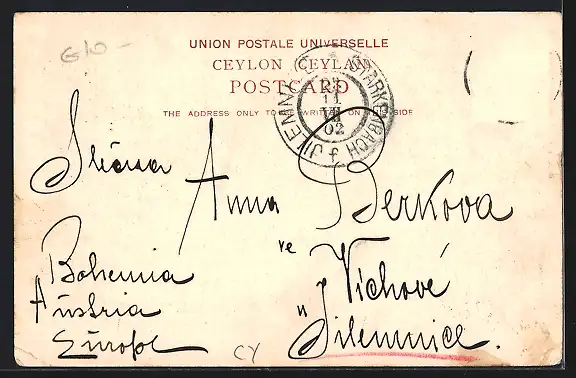 G10 -
UNION POSTALE UNIVERSELLE
CEYLON (CEYLAN)
POSTCARD
THE ADDRESS ONLY TO BE WRITTEN ON THIS SIDE
JILEMNICE STARKENBACH
11
VII
02
f
Slečna
Anna Berkova
ve Víchové
u Jilemnice.
Bohemia
Austria
Europe
CY